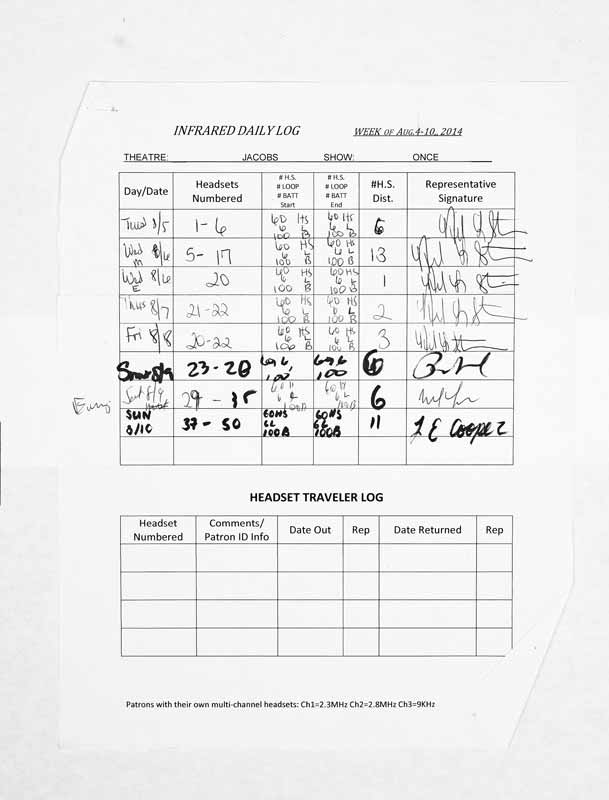 INFRARED DAILY LOG WEEK OF AUG.4-10, 2014
THEATRE: JACOBS SHOW: ONCE
Day/Date Headsets Numbered # H.S. # LOOP # BATT Start # H.S. # LOOP # BATT End #H.S. Dist. Representative Signature
Tues 8/5 1-6 60 HS 6 L 100 B 60 HS 6 L 100 B 6
Wed 8/6 M 5-17 60 HS 6 L 100 B 60 HS 6 L 100 B 13
Wed 8/6 E 20 60 HS 6 L 100 B 60 HS 6 L 100 B 1
Thus 8/7 21-22 60 HS 6 L 100 B 60 HS 6 L 100 B 2
Fri 8/8 20-22 60 HS 6 L 100 B 60 HS 6 L 100 B 3
8/9 23-28 100 100
Sat 8/9 29 - 35 60 H 6 L 100B 60 H 6 L 100B 6
SUN 8/10 37-50 60HS 6L 100B 60HS 6L 100B 11 J E Cooper
HEADSET TRAVELER LOG
Headset Numbered Comments/ Patron ID Info Date Out Rep Date Returned Rep
Patrons with their own multi-channel headsets: Ch1=2.3MHz Ch2=2.8MHz Ch3=9KHz